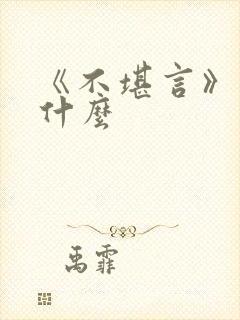 《不堪言》
什麼
禹霏